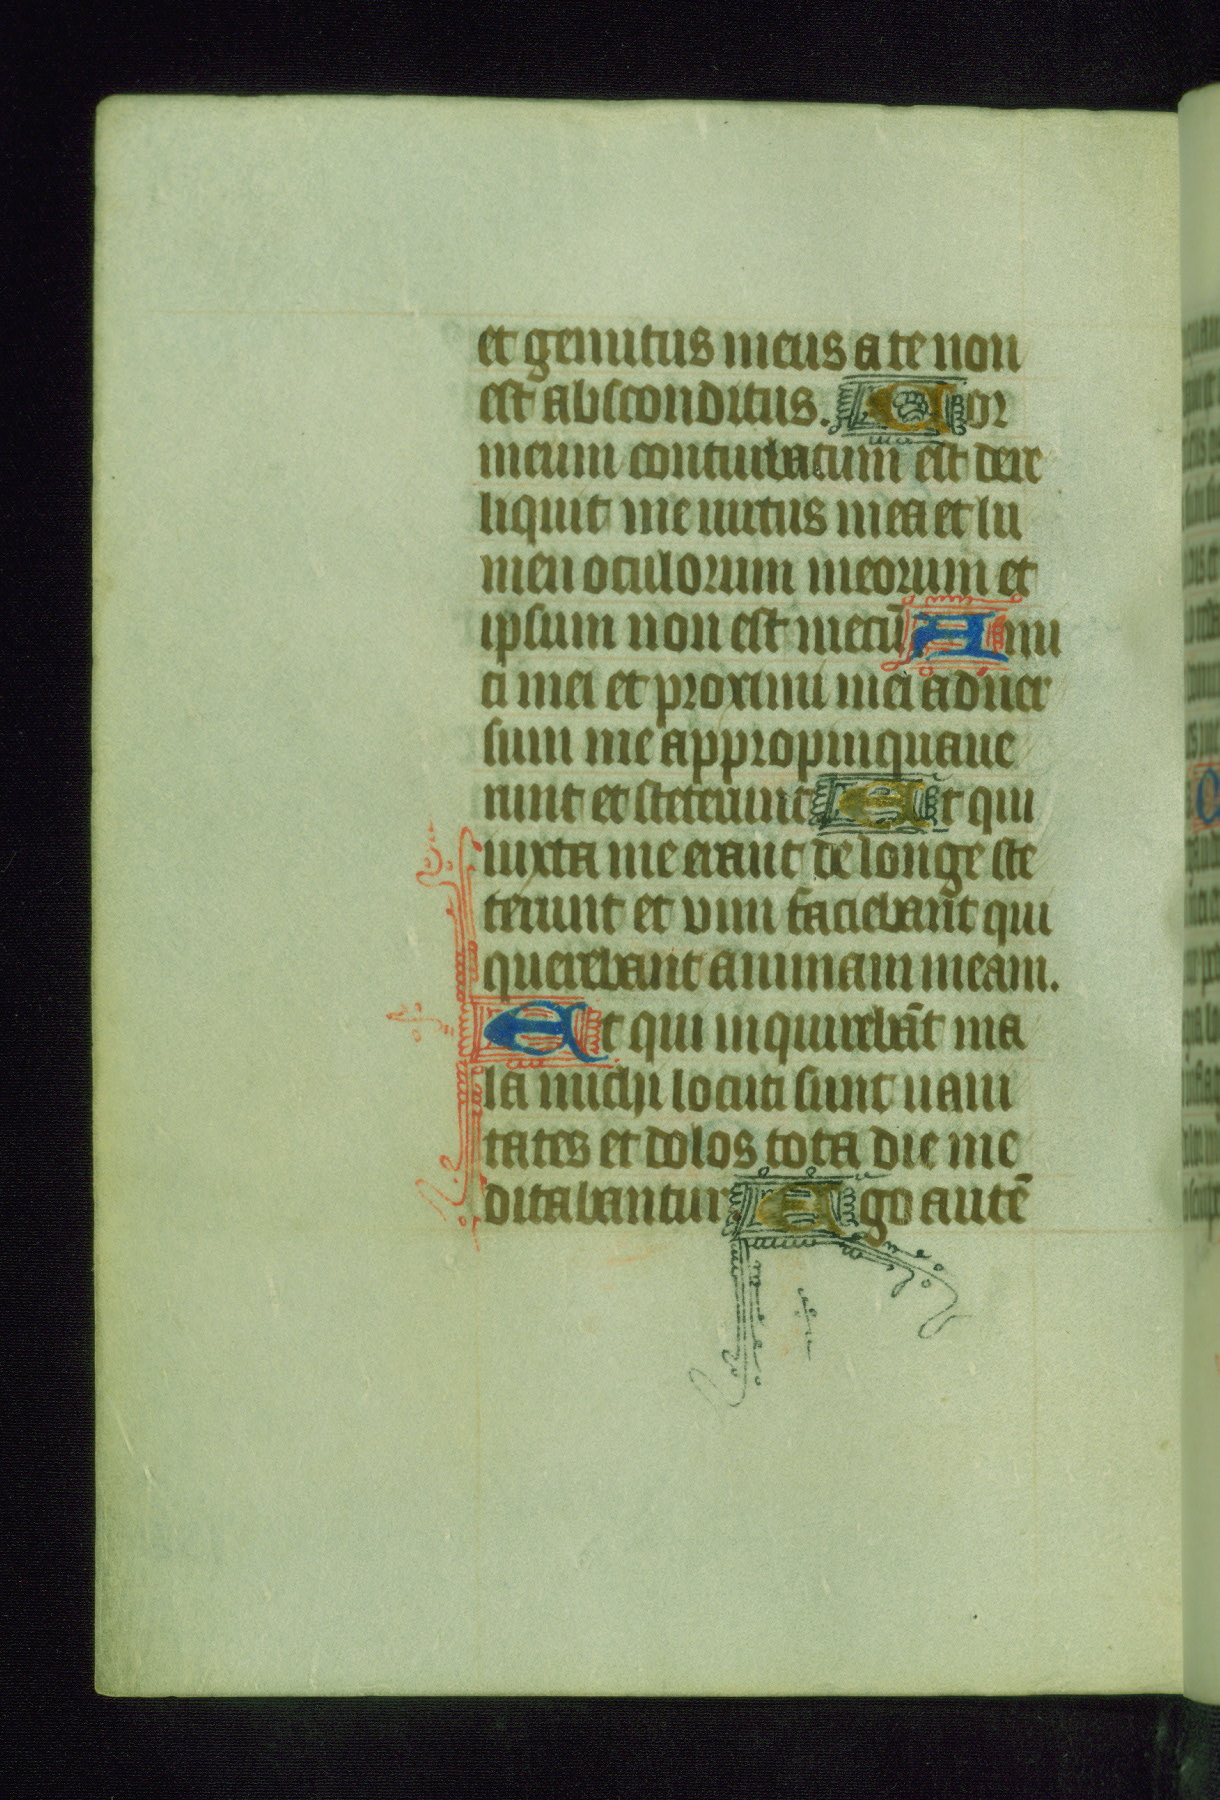 et gemitus meus a te non
est absconditus. Cor
meum conturbatum est dere
liquit me uirtus mea et lu
men oculorum meorum et
ipsum non est mecū Ami
ci mei et proximi mei aduer
sum me appropinquaue
runt et steterunt Et qui
iuxta me erant de longe ste
terunt et vim faciebant qui
querebant animam meam.
Et qui inquirebāt ma
la michi locuti sunt uani
tates et dolos tota die me
ditabantur Ego autē